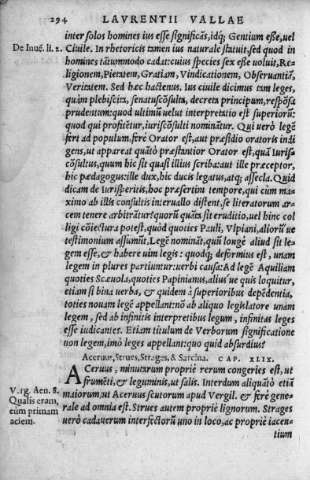 294 LAVRENTII VALLAE
inter solos homines ius esse significās, idq; Gentium esse, uel
De Inuē. li. 2. Ciuile. In rhetoricis tamen ius naturale statuit, sed quod in
homines tātummodo cadat: cuius species sex esse uoluit, Re/
ligionem, Pietatem, Gratiam, Vindicationem, Obseruantiā,
Veritatem. Sed hæc hactenus. Ius ciuile dicimus tam leges,
quàm plebiscita, senatusconsulta, decreta principum, respōsa
prudentum: quod ultimū uelut interpretatio est superiorū:
quod qui profitetur, iurisconsulti nominātur. Qui uerò legē
fert ad populum, ferè Orator est, aut præsidio oratoris indi
gens, ut appareat quātò præstantior Orator est, quā iurisco
sultus, quum hic sit quasi illius scriba: aut ille præceptor,
hic pædagogus: ille dux, hic ducis legatus, atq; assecla. Quid
dicam de iurisperitis, hoc præsertim tempore, qui cùm ma
ximo ab illis consultis interuallo distent, se literatorum ar
cem tenere arbitrātur? quorū quāta sit eruditio, uel hinc col
ligi cōiectura potest, quòd quoties Pauli, Vlpiani, aliorū ue
testimonium assumūt, Legē nomināt, quū longè aliud sit le
gem esse, & habere uim legis: quodq; deformius est, unam
legem in plures partiuntur: uerbi causa: Ad legē Aquiliam
quoties Scæuola, quoties Papinianus, alius ue quis loquitur,
etiam si bina uerba, & quidem à superioribus depēdentia,
toties nouam legē appellant: nō ab aliquo legislatore unam
legem, sed ab infinitis interpretibus legum, infinitas leges
esse iudicantes. Etiam titulum de Verborum significatione
non legem, imò leges appellant: quo quid absurdius?
Aceruus, Strues, Strages, & Sarcina. CAP. XLIX.
ACeruus, minutarum propriè rerum congeries est, ut
frumēti, & leguminis, ut salis. Interdum aliquātò etiā
Verg. Aen. 8. maiorum, ut Aceruus scutorum apud Vergil. & ferè gene
Qualis eram, rale ad omnia est. Strues autem propriè lignorum. Strages
cùm primam uerò cadauerum interfectorū uno in loco, ac propriè iacen
aciem. tium